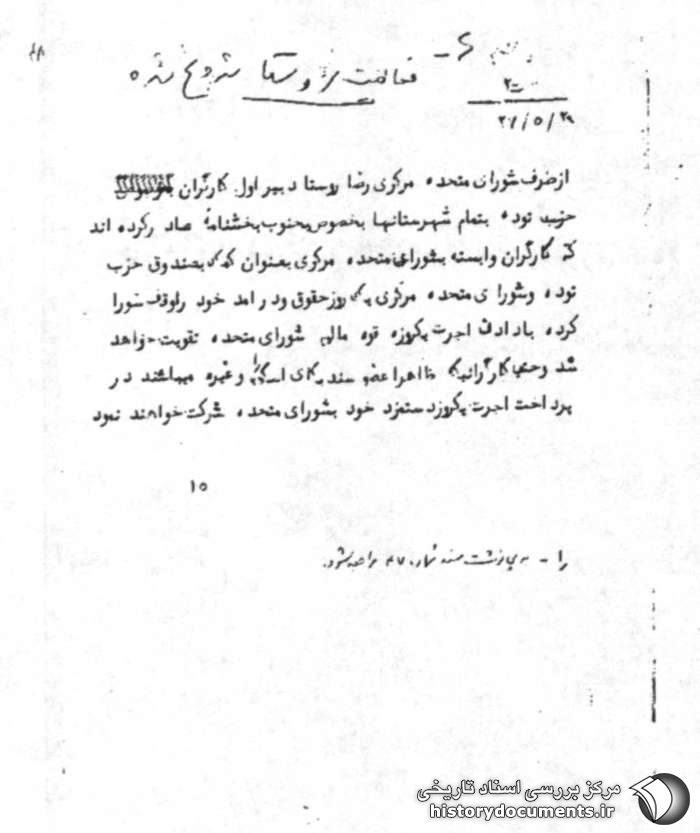 ۴۸
فعالیت روستا شروع شده
۲۹/۵/۲۶
از طرف شورای متحده مرکزی رضا روستا دبیر اول کارگران
حزب توده بتمام شهرستانها بخصوص بجنوب بخشنامهٔ صادر کرده اند
که کارگران وابسته بشورای متحده مرکزی بعنوان کمک بصندوق حزب
توده وشورای متحده مرکزی یک روز حقوق ودرامد خود راوقف شورا
کرده بادادن اجرت یکروزه قوه مالی شورای متحده تقویت خواهد
شد وحتی کارگرانیکه ظاهرا عضو سندیکای اسکی وغیره میباشند در
پرداخت اجرت یکروزدستمزد خود بشورای متحده شرکت خواهند نمود
۱۵
را - به پی نوشت سند شماره ۴۷ مراجعه شود.
مرکز بررسی اسناد تاریخی
historydocuments.ir